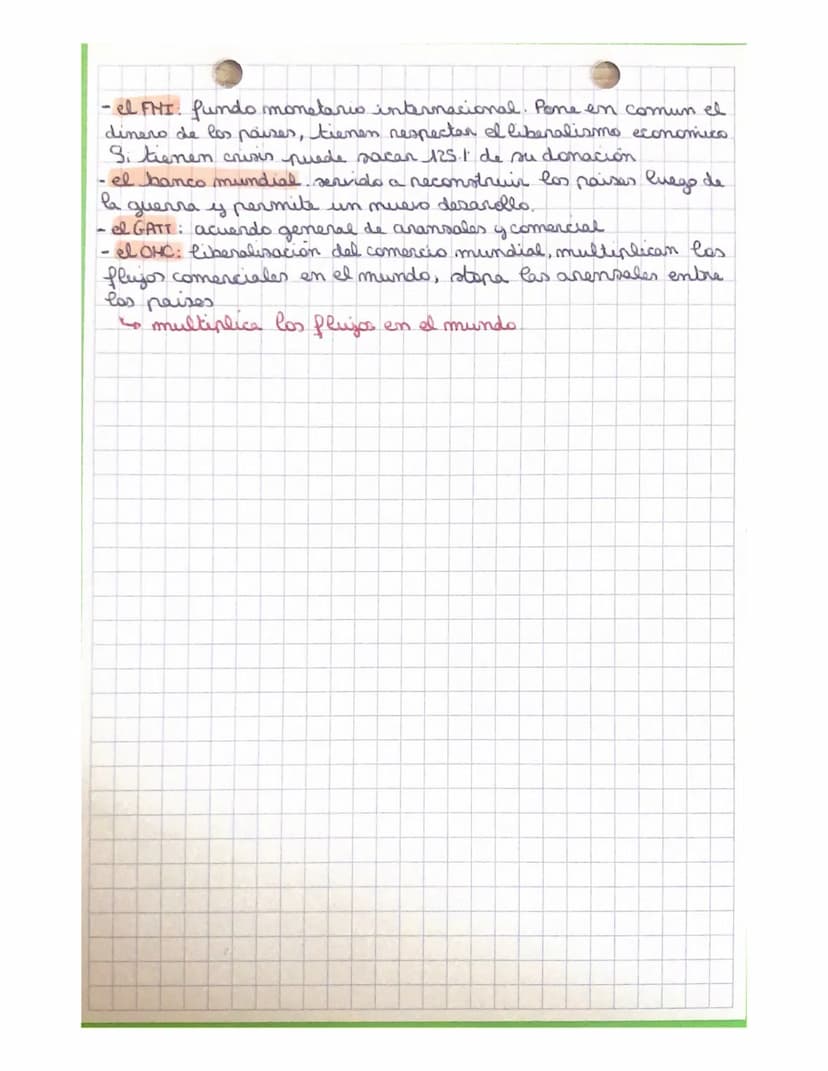 - el FMI: fundo monetario internacional. Pone en comun el
dinero de los países, tienen respectar el liberalismo economico
Si tienen crisis puede sacar 125% de su donación
- el banco mundial. servido a reconstruir los países luego de
la guerra y permite un nuevo desarollo.
- el GATT: acuerdo general de aransales y comercial
- el OMC: liberalisación del comercio mundial, multiplican los
flujos comerciales en el mundo, stopa las arensales entre
los países
↳ multiplica los flujos en el mundo.